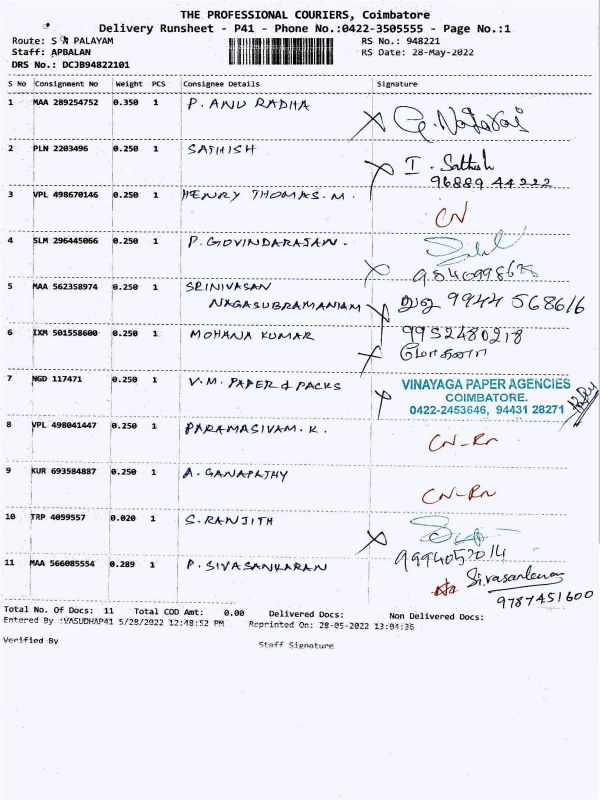 THE PROFESSIONAL COURIERS, Coimbatore
Delivery Runsheet - P41 - Phone No.:0422-3505555 - Page No.:1
Route: S R PALAYAM RS No.: 948221
Staff: APBALAN RS Date: 28-May-2022
DRS No.: DCJB94822101
S No Consignment No Weight PCS Consignee Details Signature
1 MAA 289254752 0.350 1 P. ANU RADHA
2 PLN 2203496 0.250 1 SATHISH I. Sathish
96889 44222
3 VPL 498670146 0.250 1 HENRY THOMAS. M. CN
4 SLM 296445066 0.250 1 P. GOVINDARAJAN.
5 MAA 562358974 0.250 1 SRINIVASAN
NAGASUBRAMANIAM 9944 568616
6 IXM 501558600 0.250 1 MOHANA KUMAR 9952480218
மோகனா
7 NGD 117471 0.250 1 V.M. PAPER & PACKS VINAYAGA PAPER AGENCIES
COIMBATORE.
0422-2453646, 94431 28271
8 VPL 498041447 0.250 1 PARAMASIVAM. K. CN-Rn
9 KUR 693584887 0.250 1 A. GANAPATHY CN-Rn
10 TRP 4059557 0.020 1 S. RANJITH
9994052014
11 MAA 566085554 0.289 1 P. SIVASANKARAN Sivasankaran
9787451600
Total No. Of Docs: 11 Total COD Amt: 0.00 Delivered Docs: Non Delivered Docs:
Entered By :VASUDHAP41 5/28/2022 12:48:52 PM Reprinted On: 28-05-2022 13:04:36
Verified By Staff Signature